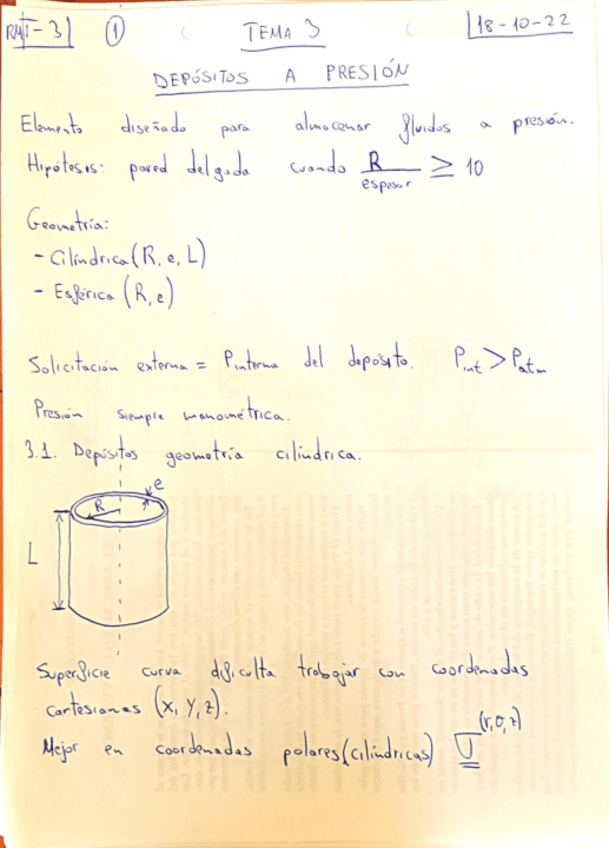 RMT-3 ① TEMA 3 18-10-22
DEPÓSITOS A PRESIÓN
Elemento diseñado para almacenar fluidos a presión.
Hipótesis: pared delgada cuando R/espesor ≥ 10
Geometría:
- Cilíndrica (R, e, L)
- Esférica (R, e)
Solicitación externa = Pinterna del depósito. Pint > Patm
Presión siempre manométrica.
3.1. Depósitos geometría cilíndrica.
e
R
L
Superficie curva dificulta trabajar con coordenadas
cartesianas (x, y, z).
Mejor en coordenadas polares (cilíndricas) (r, θ, z)